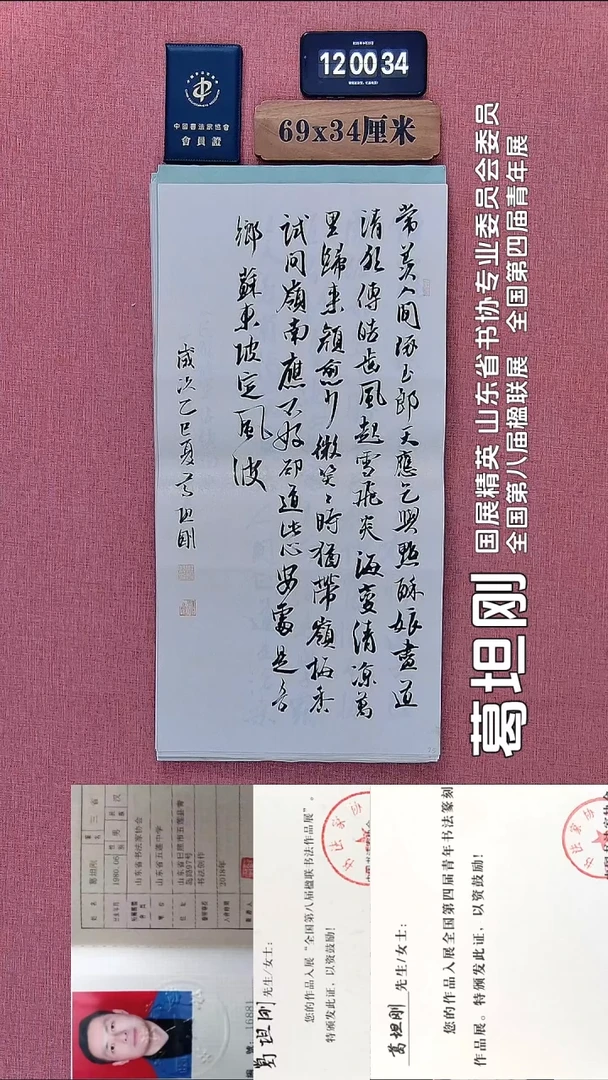 中国书法家协会
會員證
12 00 34
69x34厘米
常羨人间琢玉郎天應乞與點酥娘盡道
清歌傳皓齒風起雪飛炎海變清涼萬
里歸来顔愈少微笑〻時猶帶嶺梅香
試问嶺南應不好却道此心安處是吾
鄉 蘇東坡定風波
歲次乙巳夏葛坦剛
国展精英 山东省书协专业委员会委员
全国第八届楹联展 全国第四届青年展
葛坦刚
姓名 葛坦刚
男
汉
1980.05
山东省书法家协会
山东省五莲中学
山东省日照市五莲县
书法创作
2018年
16881
葛坦刚 先生/女士：
您的作品入展“全国第八届楹联书法作品展”，
特颁发此证，以资鼓励！
葛坦刚 先生/女士：
您的作品入展全国第四届青年书法篆刻
作品展。特颁发此证，以资鼓励！